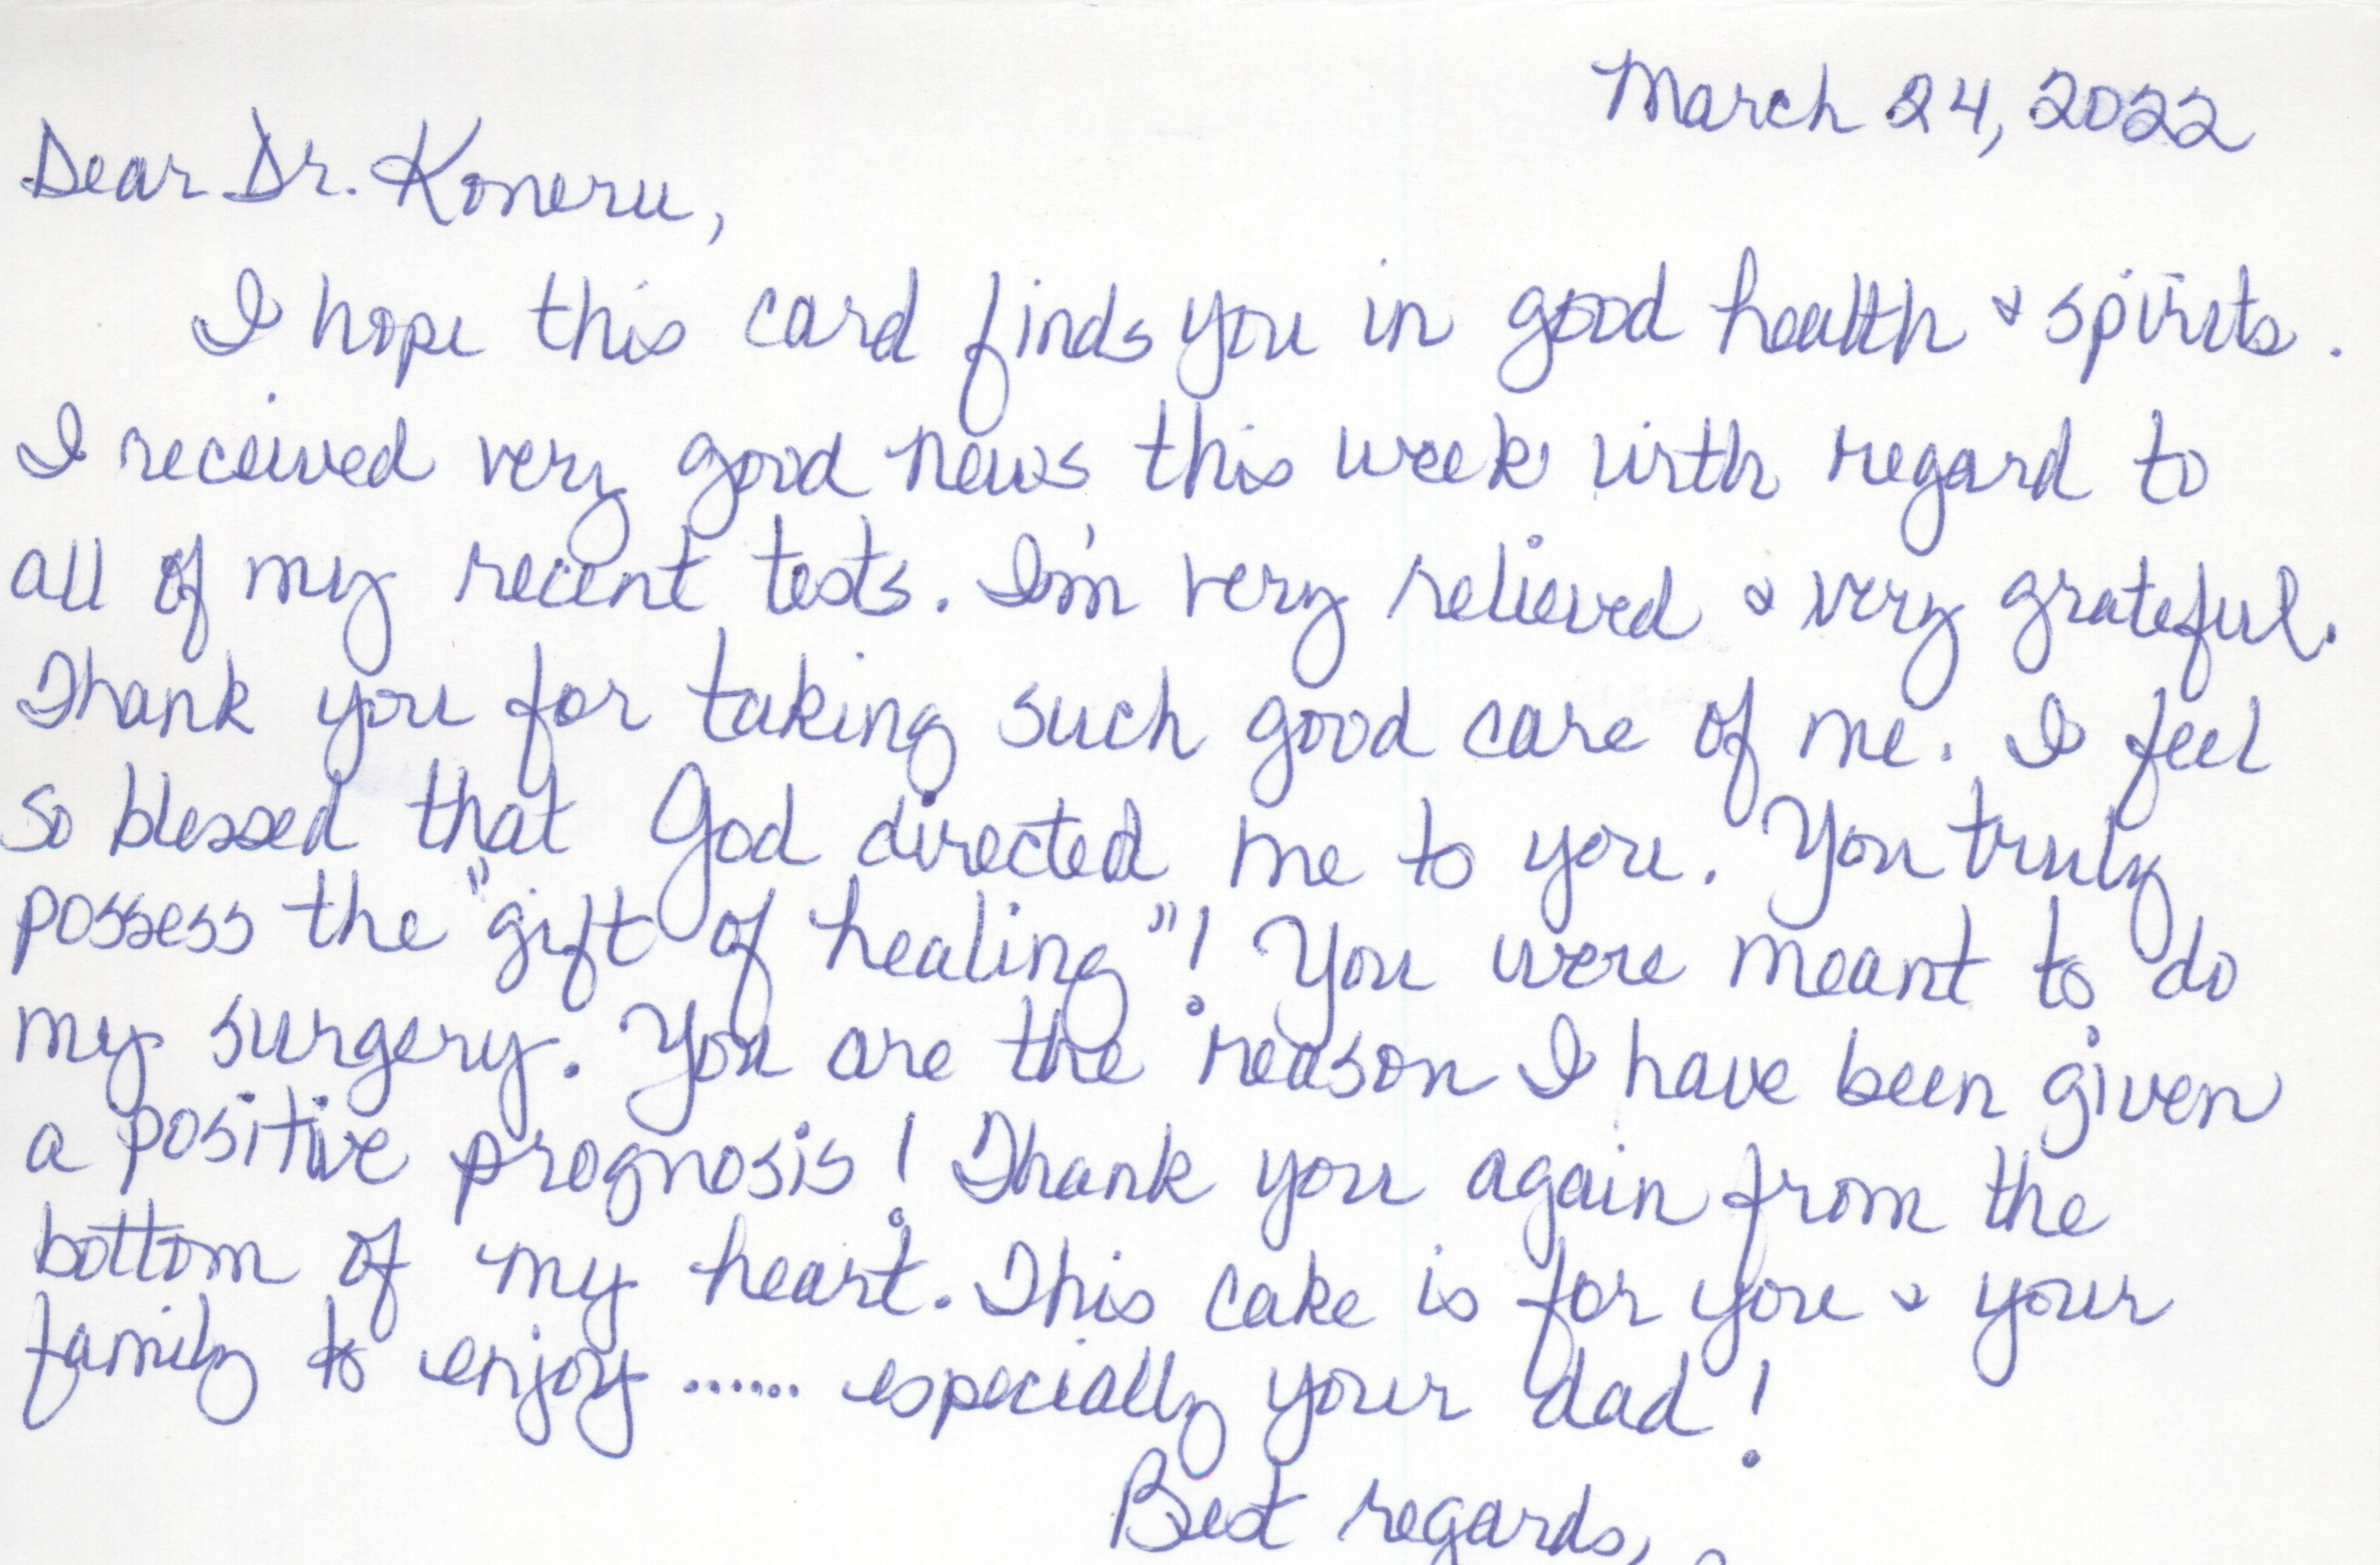 March 24, 2022
Dear Dr. Koneru,
I hope this card finds you in good health & spirits.
I received very good news this week with regard to
all of my recent tests. I'm very relieved & very grateful.
Thank you for taking such good care of me. I feel
so blessed that God directed me to you. You truly
possess the "gift of healing"! You were meant to do
my surgery. You are the reason I have been given
a positive prognosis! Thank you again from the
bottom of my heart. This cake is for you & your
family to enjoy...... especially your dad!
Best regards,